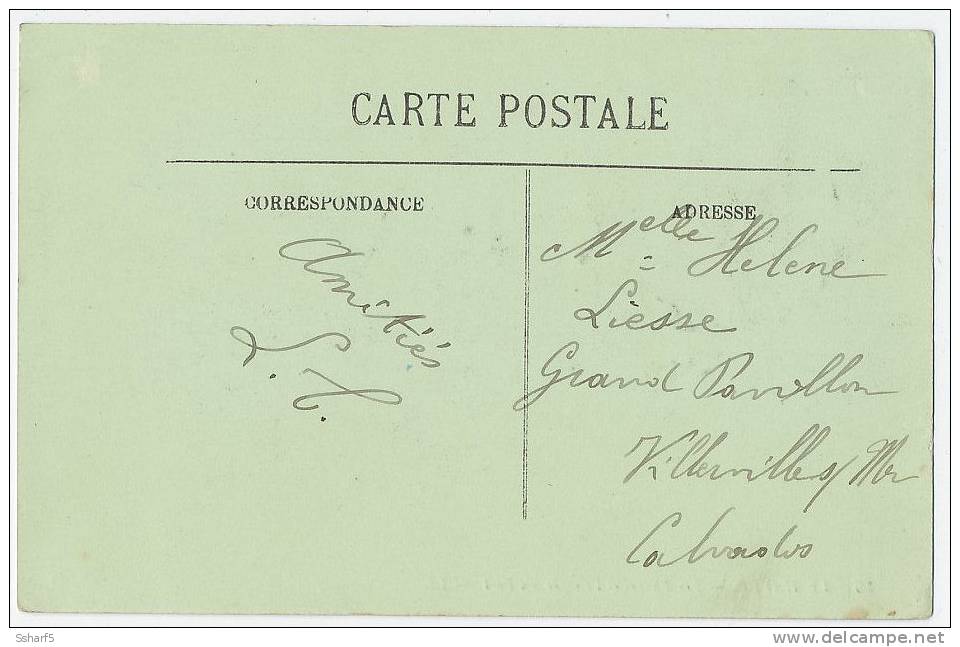 CARTE POSTALE
CORRESPONDANCE
Amitiés
L. H.
ADRESSE
Melle Helene
Liesse
Grand Pavillon
Villerville s/ Mer
Calvados
Ssharf5
www.delcampe.net